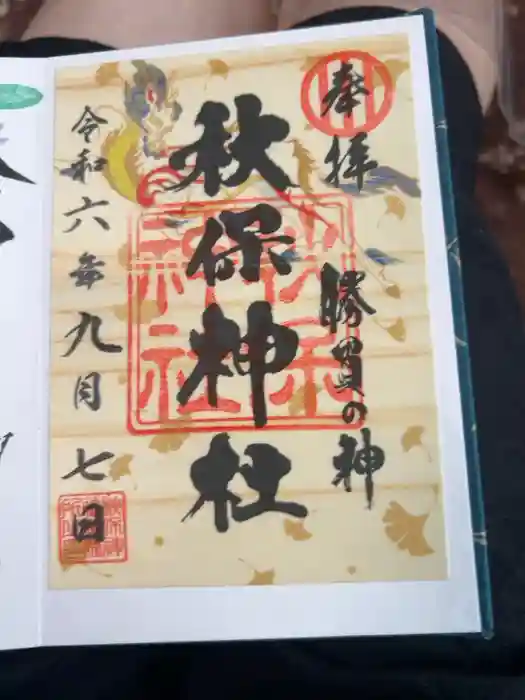 奉拝
勝負の神
秋保神社
令和六年九月七日
秋保神社